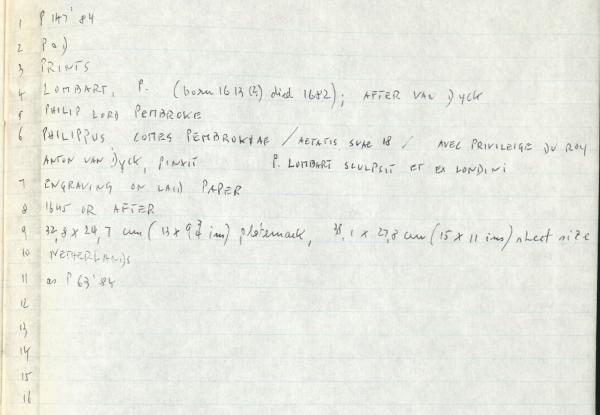 1 P 147'84
2 P a)
3 PRINTS
4 LOMBART, P. (born 1613(?) died 1682); AFTER VAN DYCK
5 PHILIP LORD PEMBROKE
6 PHILIPPUS COMES PEMBROKIAE / AETATIS SUAE 18 / AVEC PRIVILEIGE DU ROY
ANTON VAN DYCK, PINXIT P. LOMBART SCULPSIT ET EX LONDINI
7 ENGRAVING ON LAID PAPER
8 1645 OR AFTER
9 32,8 x 24,7 cm (13 x 9 3/4 ins) platemark, 38,1 x 27,8 cm (15 x 11 ins) sheet size
10 NETHERLANDS
11 as P 63'84
12
13
14
15
16